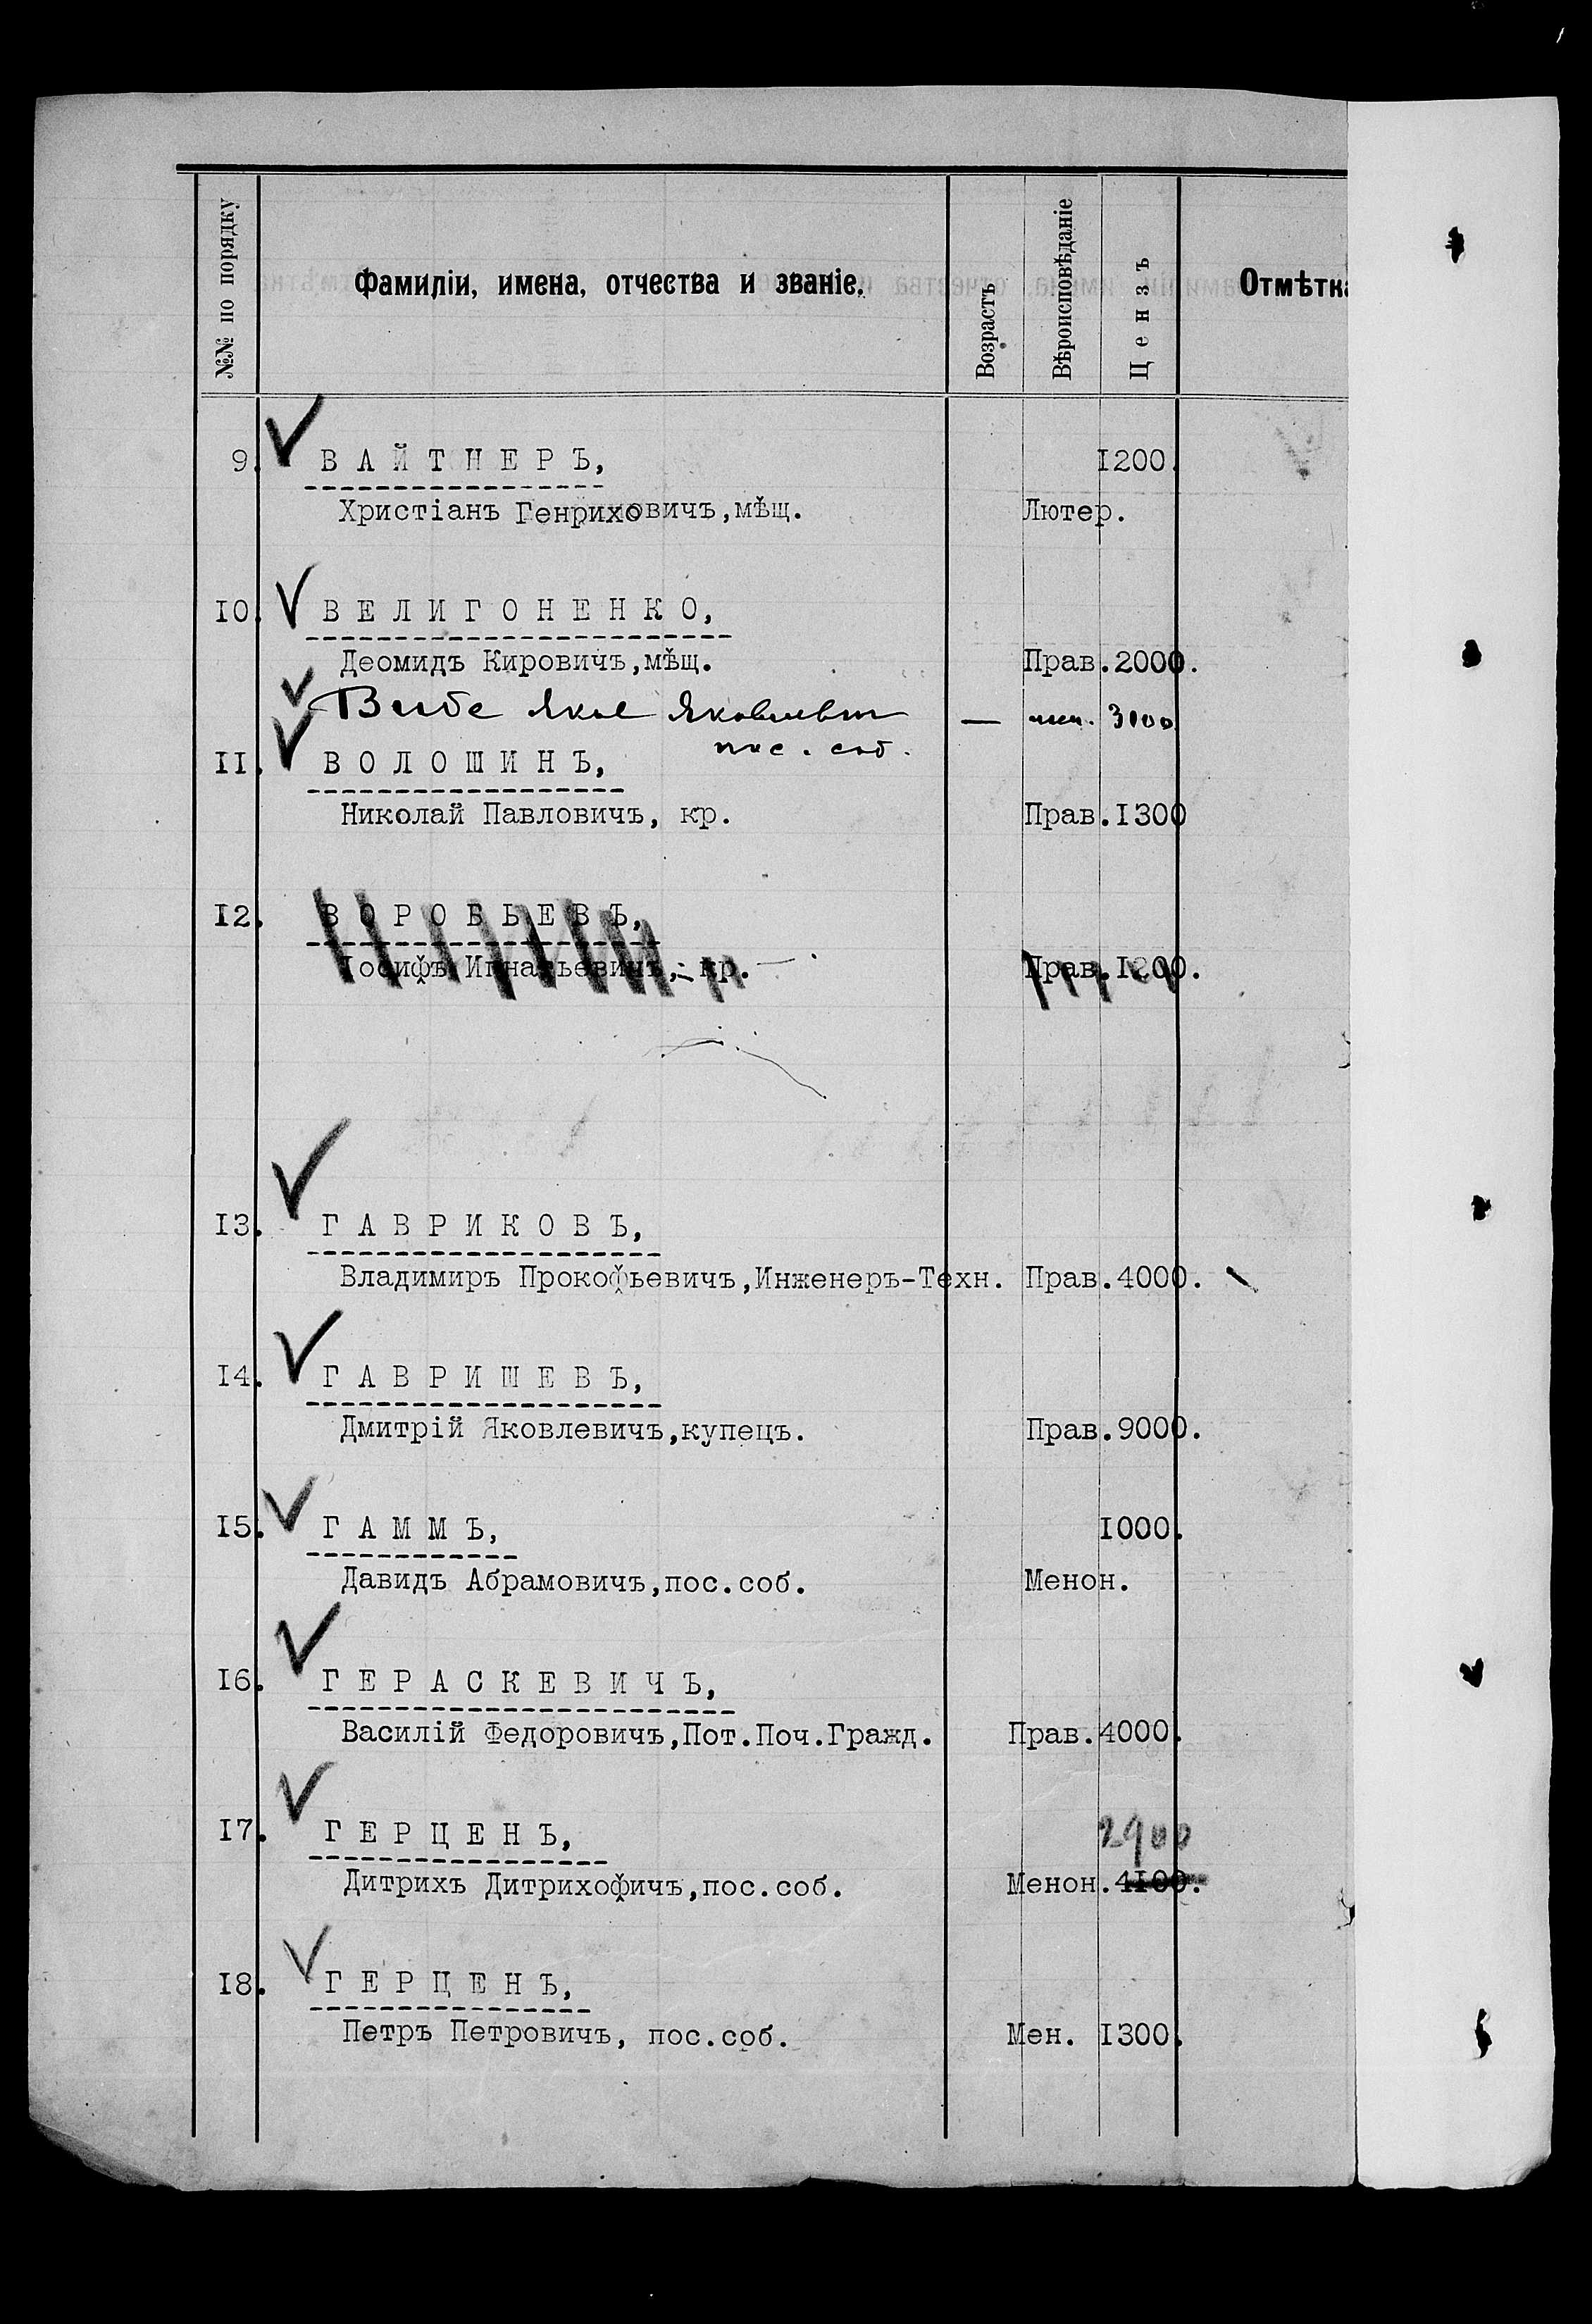 №№ по порядку
Фамиліи, имена, отчества и званіе.
Возрастъ
Вѣроисповѣданіе
Цензъ
Отмѣтка
9. ВАЙТНЕРЪ, 1200.
Христіанъ Генриховичъ,мѣщ. Лютер.
10. ВЕЛИГОНЕНКО,
Деомидъ Кировичъ,мѣщ. Прав.2000.
Вибе Яков Яковлевич — мен. 3100
пос. соб.
11. ВОЛОШИНЪ,
Николай Павловичъ, кр. Прав.1300
12. ВОРОБЬЕВЪ,
Іосифъ Игнатьевичъ, кр. Прав.1200.
13. ГАВРИКОВЪ,
Владимиръ Прокофьевичъ,Инженеръ-Техн. Прав.4000.
14. ГАВРИШЕВЪ,
Дмитрій Яковлевичъ,купецъ. Прав.9000.
15. ГАММЪ, 1000.
Давидъ Абрамовичъ,пос.соб. Менон.
16. ГЕРАСКЕВИЧЪ,
Василій Федоровичъ,Пот.Поч.Гражд. Прав.4000.
17. ГЕРЦЕНЪ, 2900
Дитрихъ Дитрихофичъ,пос.соб. Менон.4100.
18. ГЕРЦЕНЪ,
Петръ Петровичъ, пос.соб. Мен. 1300.